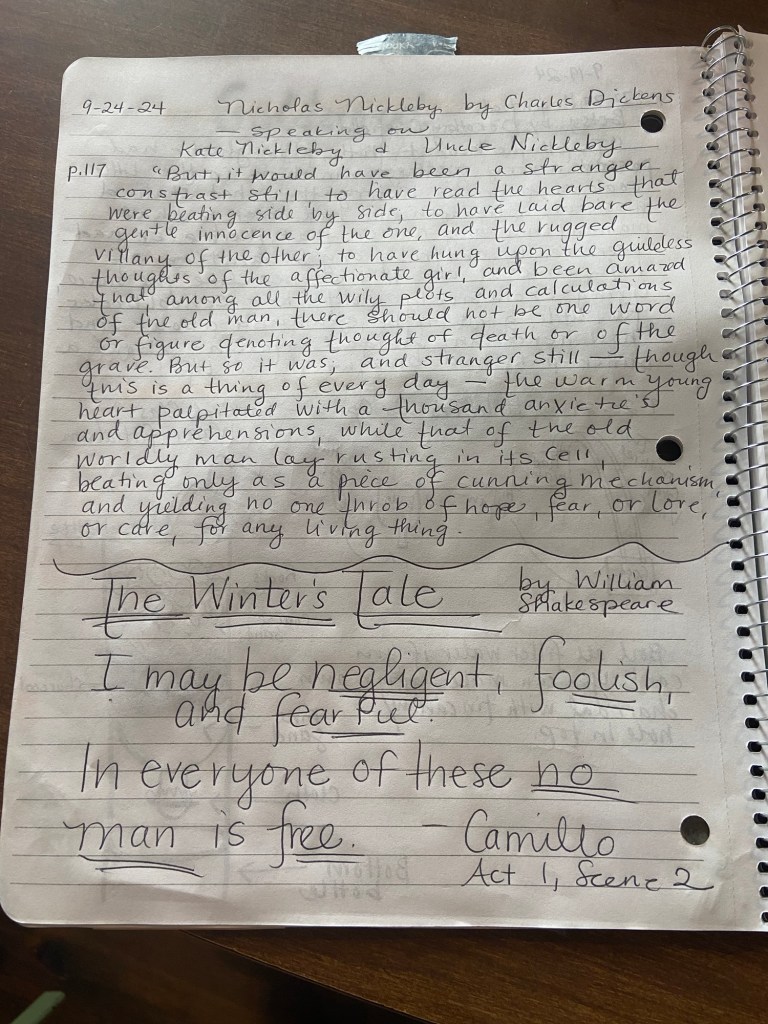 9-24-24 Nicholas Nickleby by Charles Dickens
— speaking on
Kate Nickleby & Uncle Nickleby
p.117 "But, it would have been a stranger
constrast still to have read the hearts that
were beating side by side, to have laid bare the
gentle innocence of the one, and the rugged
villany of the other; to have hung upon the guileless
thoughts of the affectionate girl, and been amazed
that among all the wily plots and calculations
of the old man, there should not be one word
or figure denoting thought of death or of the
grave. But so it was; and stranger still — though
this is a thing of every day — the warm young
heart palpitated with a thousand anxieties
and apprehensions, while that of the old
worldly man lay rusting in its cell,
beating only as a piece of cunning mechanism,
and yielding no one throb of hope, fear, or love,
or care, for any living thing.
The Winter's Tale by William
Shakespeare
I may be negligent, foolish,
and fearful.
In everyone of these no
man is free. — Camillo
Act 1, Scene 2